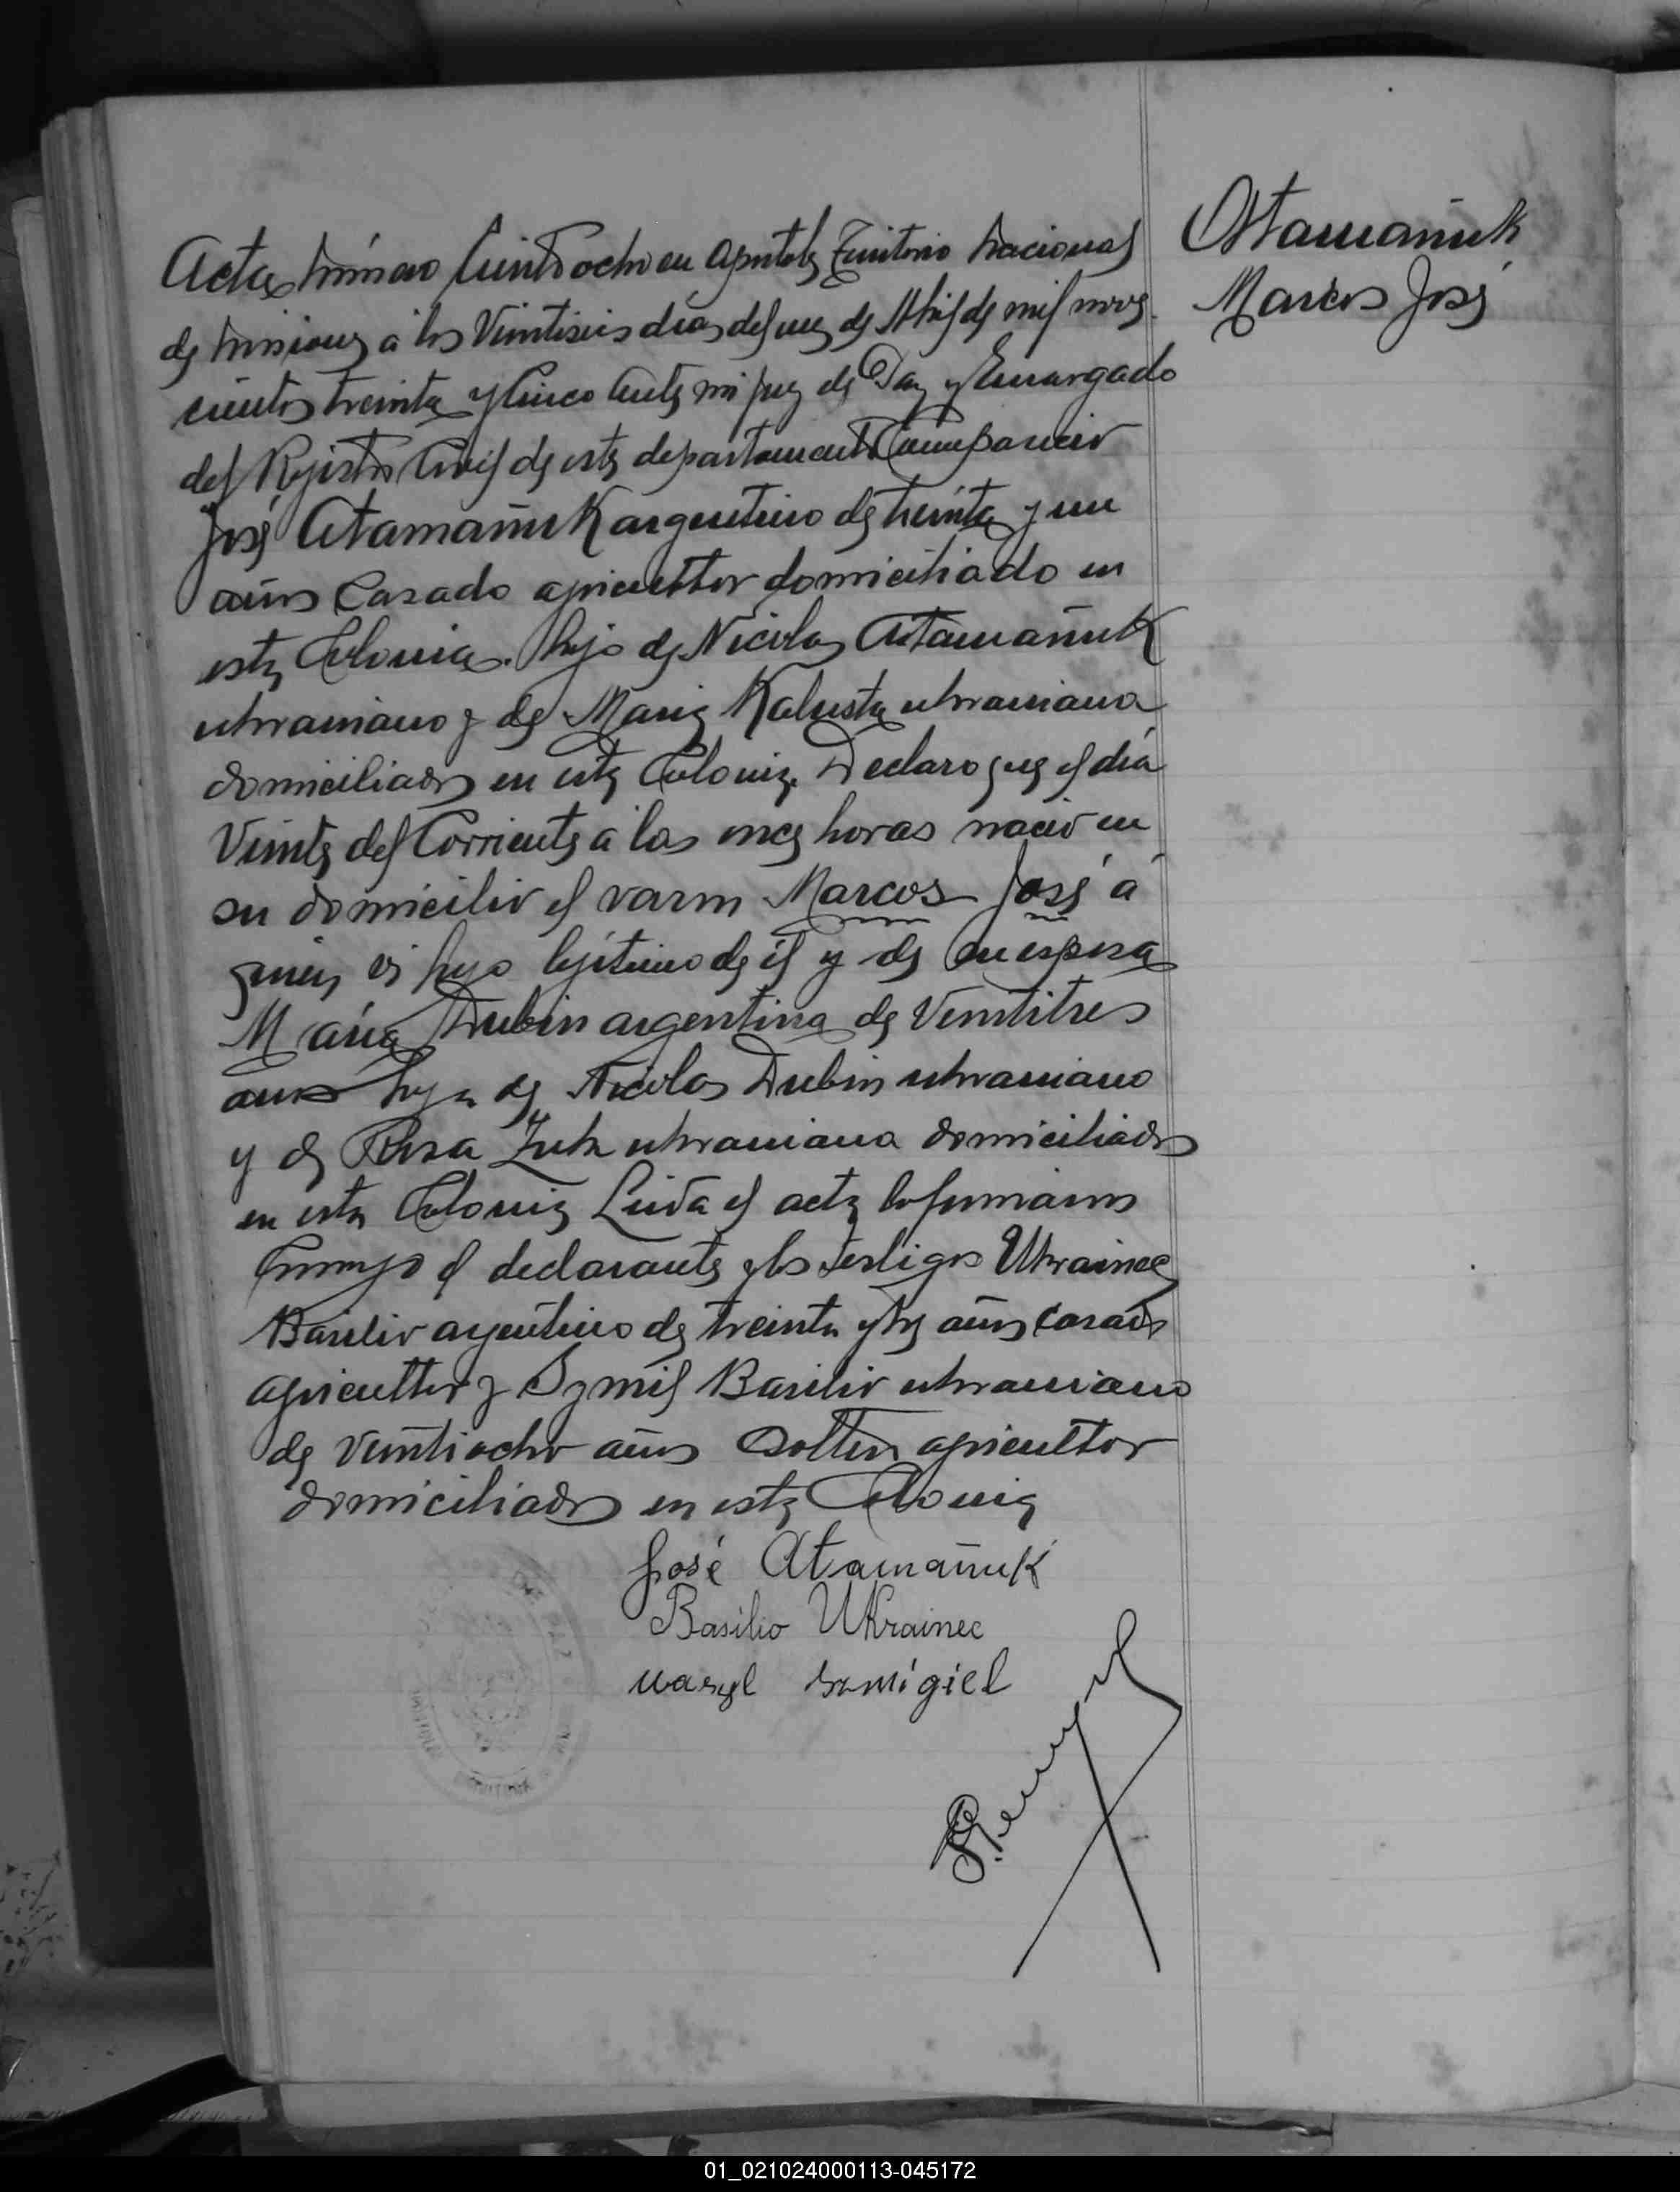 Acta número Ciento ocho en Apóstoles Territorio Nacional
de Misiones a los Veintiseis días del mes de Abril de mil nove-
cientos treinta y Cinco Ante mi Juez de Paz y Encargado
del Rejistro Civil de este departamento Compareció
José Atamañuk argentino de treinta y un
años Casado agricultor domiciliado en
esta Colonia. hijo de Nicolas Atamañuk
ukraniano y de Maria Kalusta ukraniana
domiciliados en esta Colonia. Declaro que el día
Veinte del Corriente a las once horas nació en
su domicilio el varon Marcos José á
quien es hijo lejítimo de él y de su esposa
María Dubin argentina de Veintitres
años hija de Nicolas Dubin ukraniano
y de Rosa Zuk ukraniana domiciliados
en esta Colonia Leida el acta la firmaron
Conmigo el declarante y los testigos Ukrainec
Basilio argentino de treinta y tres años casado
agricultor y Szmil Basilio ukraniano
de Veintiocho años Soltero agricultor
domiciliados en esta Colonia
José Atamañuk
Basilio Ukrainec
Wasyl Szmigiel
Atamañuk
Marcos José
01_021024000113-045172